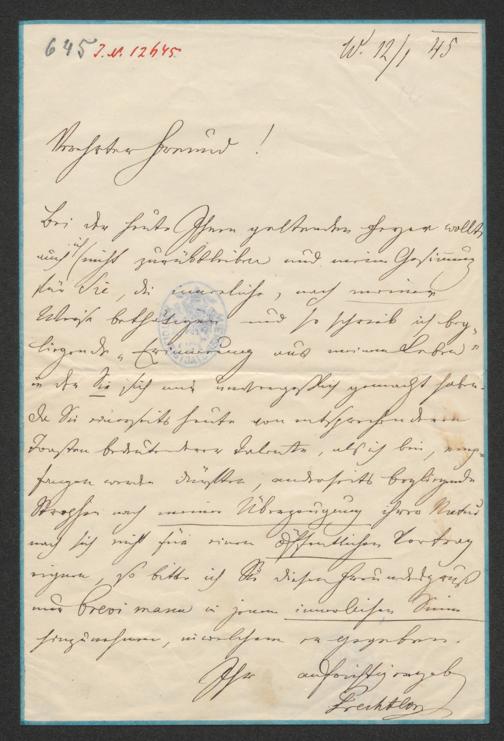 645 I.N. 12645
W. 12/1 45
Verehrter Freund!
Bei der heute Ihnen geltenden Feyer wollte
auch ich nicht zurückbleiben und meine Gesinnung
für Sie, die innerliche, nach meiner
Weise bethätigen und so schrieb ich bey-
liegende „Erinnerung aus meinem Leben"
in der Sie sich mir unvergeßlich gemacht haben.
Da Sie einerseits heute von entsprechenderen
Toasten bedeutenderer Talente, als ich bin, emp-
fangen werden dürften, anderseits beyliegende
Strophen nach meiner Überzeugung ihrer Natur
nach sich nicht für einen öffentlichen Vortrag
eignen, so bitte ich Sie diesen Freundesgruß
nur brevi manu in jenem innerlichen Sinne
hinzunehmen, in welchem er gegeben.
Ihr aufrichtig ergeb
Prechtler